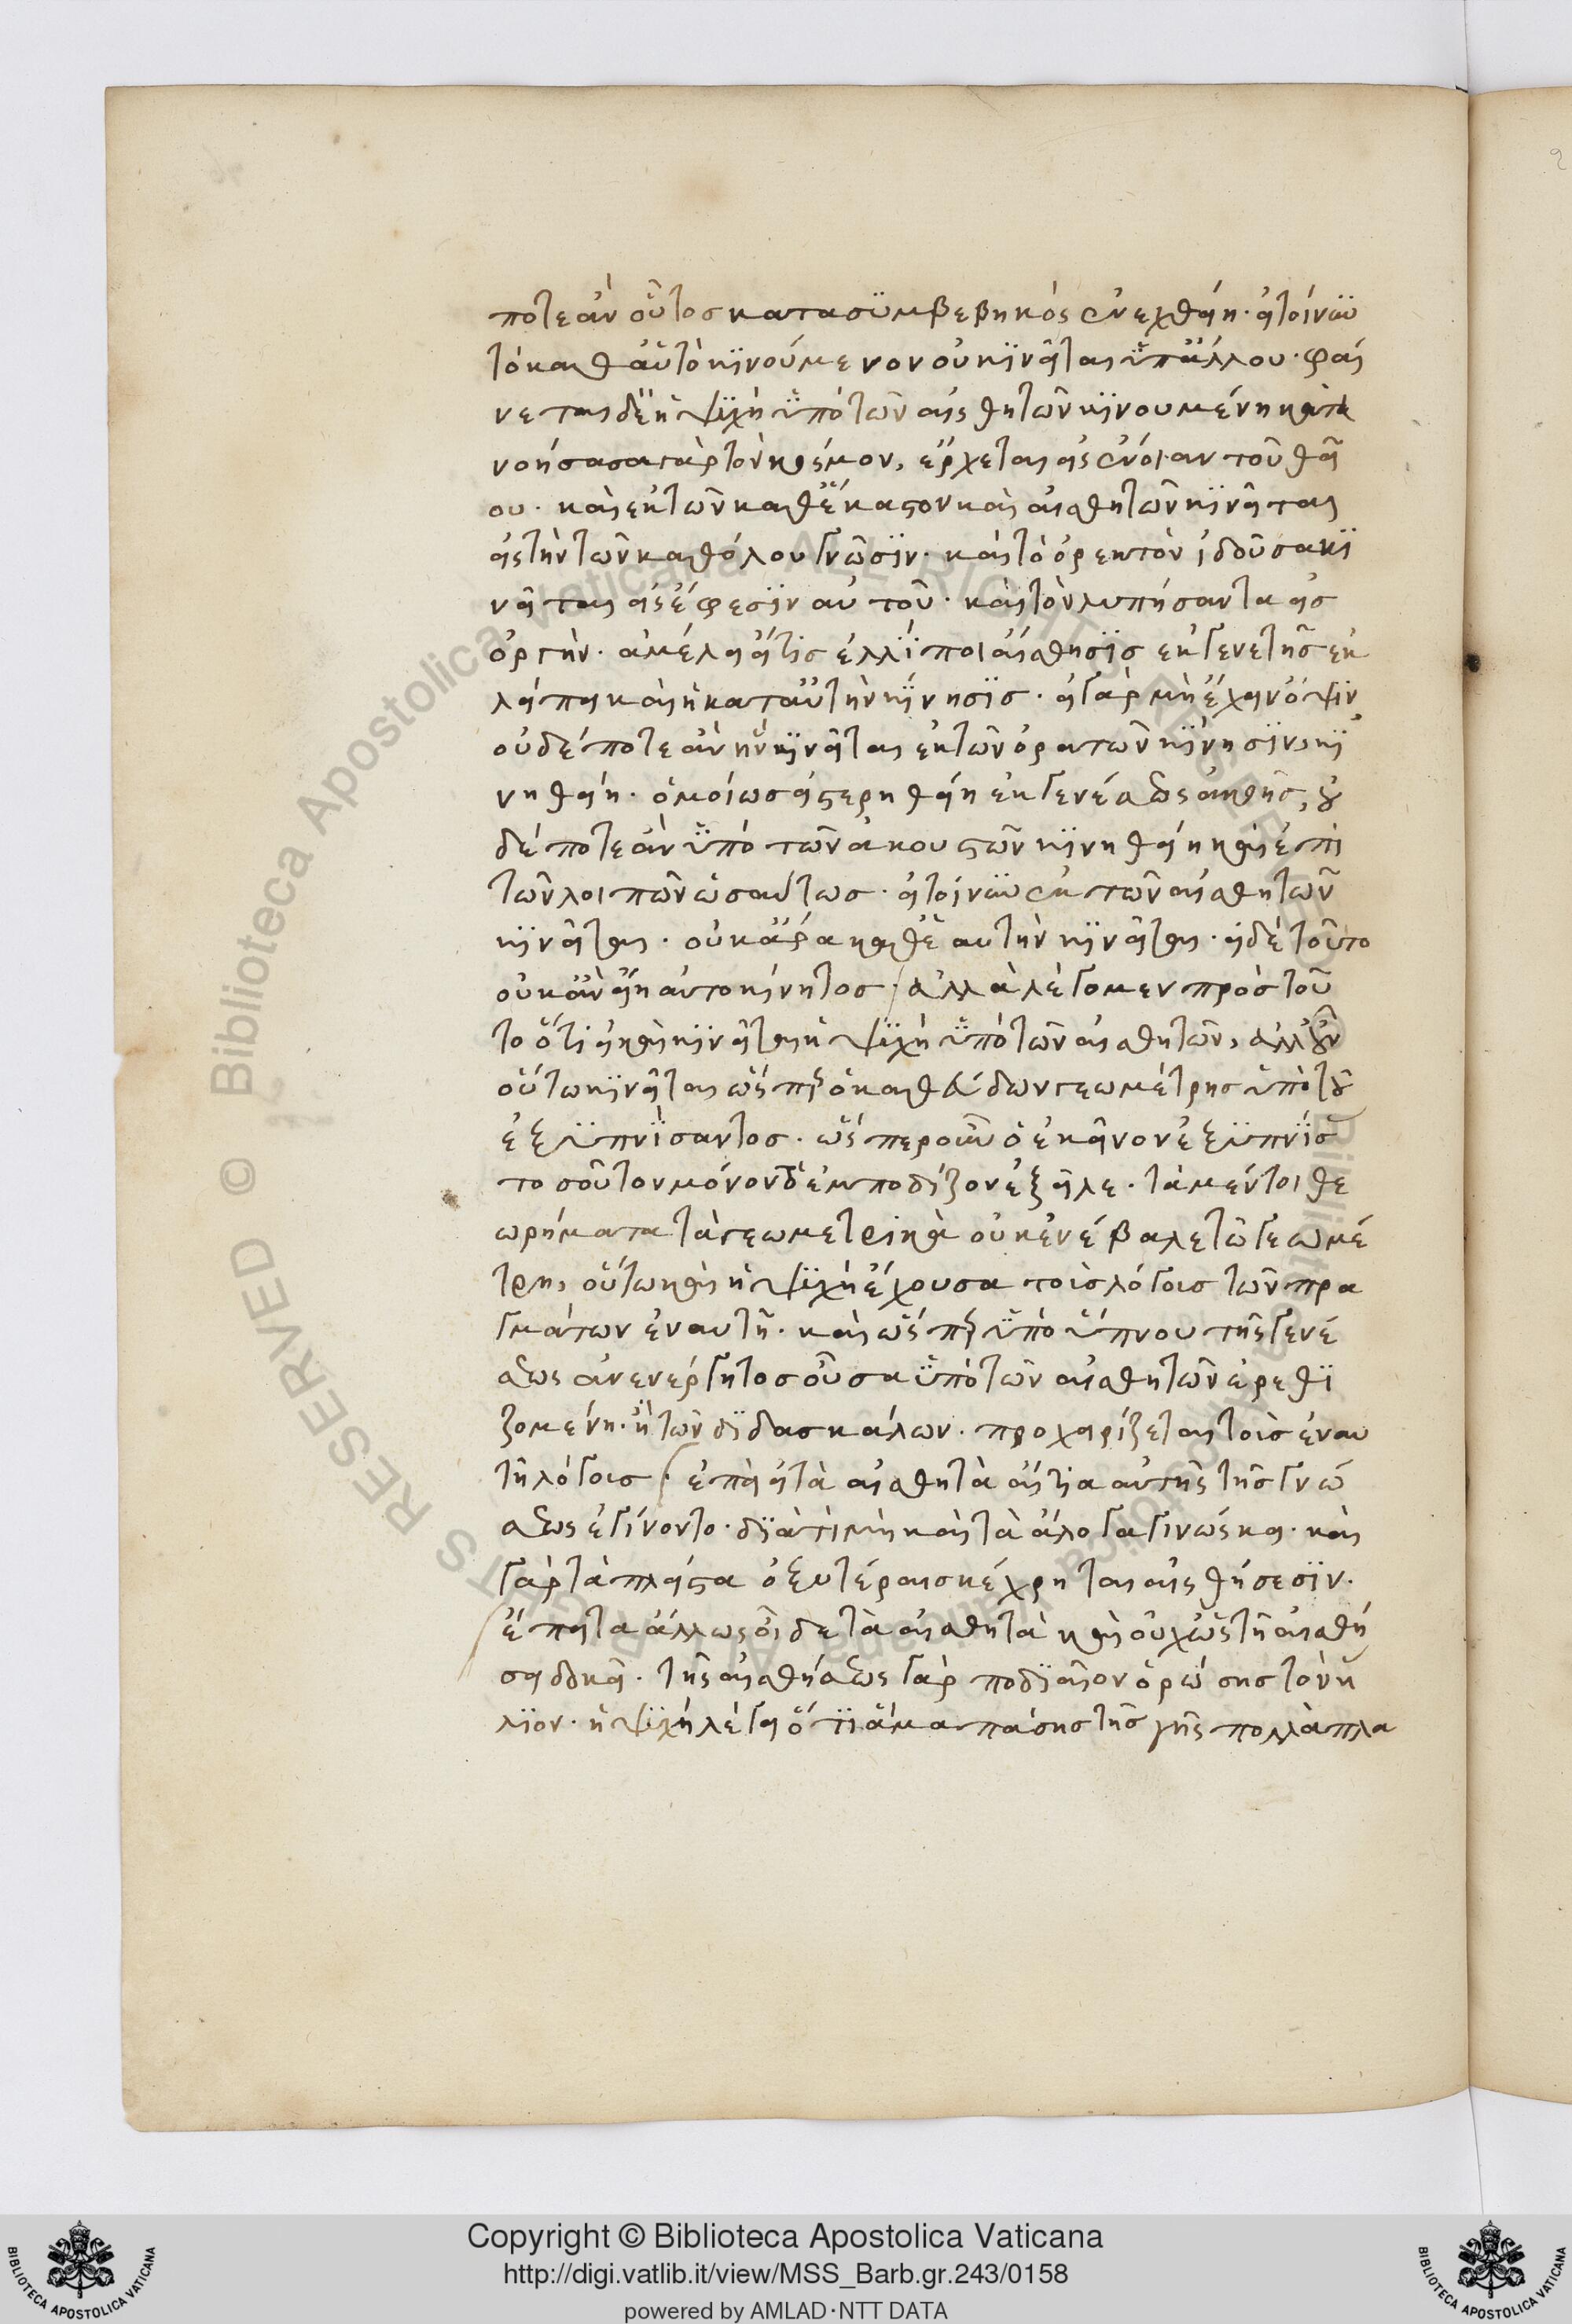 ποτε ἂν οὗτος κατα συμβεβηκός ἐνεχθείη· εἰ τοίνυν
τὸ καθ αὑτὸ κινούμενον οὐ κινεῖται ὑπ ἄλλου· φαί
νεται δὲ ἡ ψυχὴ ὑπὸ τῶν αἰσθητῶν κινουμένη κατα
νοήσασα γὰρ τὸν κόσμον, ἔρχεται εἰς ἔννοιαν τοῦ θεί
ου· καὶ ἐκ τῶν καθ ἕκαστον καὶ αἰσθητῶν κινεῖται
εἰς τὴν τῶν καθόλου γνῶσιν· καὶ τὸ ὀρεκτὸν ἰδοῦσα κι
νεῖται εἰς ἔφεσιν αὐτοῦ· καὶ τὸν λυπήσαντα εἰς
ὀργήν· ἀμέλει εἴ τις ἐλλίποι αἴσθησις ἐκ γενετῆς ἐκ
λείπει καὶ ἡ κατ αὐτὴν κίνησις· εἰ γὰρ μὴ ἔχει ὄψιν
οὐδέποτε ἂν ἣν κινεῖται ἐκ τῶν ὁρατῶν κίνησιν, κι
νηθείη· ὁμοίως εἰ στερηθείη ἐκ γενέσεως ἀκοῆς, οὐ
δέποτε ἂν ὑπὸ τῶν ἀκουστῶν κινηθείη καὶ ἐπὶ
τῶν λοιπῶν ὡσαύτως· εἰ τοίνυν ἐκ τῶν αἰσθητῶν
κινεῖται· οὐκ ἄρα καθ ἑαυτὴν κινεῖται· εἰ δὲ τοῦτο
οὐκ ἂν εἴη αὐτοκίνητος· ἀλλὰ λέγομεν πρὸς τοῦ
το ὅτι εἰ καὶ κινεῖται ἡ ψυχὴ ὑπὸ τῶν αἰσθητῶν, ἀλλ οὖν
οὕτω κινεῖται ὥσπερ ὁ καθεύδων γεωμέτρης ὑπὸ τοῦ
ἐξυπνίσαντος· ὥσπερ οὖν ὁ ἐκεῖνον ἐξυπνίσ
το σοῦτον μόνον τὸ ἐμποδίζον ἐξεῖλε· τὰ μέντοι θε
ωρήματα τὰ γεωμετρικὰ οὐκ ἐνέβαλε τῷ γεωμέ
τρῃ, οὕτω καὶ ἡ ψυχὴ ἔχουσα τοῖς λόγοις τῶν πρα
γμάτων ἐν αυτῇ· καὶ ὥσπερ ὑπὸ ὕπνου τῆς γενέ
σεως ἀνενέργητος οὖσα ὑπὸ τῶν αἰσθητῶν ἐρεθι
ζομένη· ἢ τῶν διδασκάλων· προχειρίζεται τοῖς ἐν αυ
τῇ λόγοις· ἐπεὶ εἰ τὰ αἰσθητὰ αἴτια αὐτῆς τῆς γνώ
σεως ἐγίνοντο· διὰ τί μὴ καὶ τὰ ἄλογα γινώσκει· καὶ
γὰρ τὰ πλεῖστα ὀξυτέραις κέχρηται αἰσθήσεσιν·
ἔπειτα ἄλλως οἶδε τὰ αἰσθητὰ καὶ οὐχ ὡς τῇ αἰσθή
σει δοκεῖ· τῆς αἰσθήσεως γὰρ ποδιαῖον ὁρώσης τὸν ἥ
λιον· ἡ ψυχὴ λέγει ὅτι ἅμα πάσης τῆς γῆς πολλὰ πλα